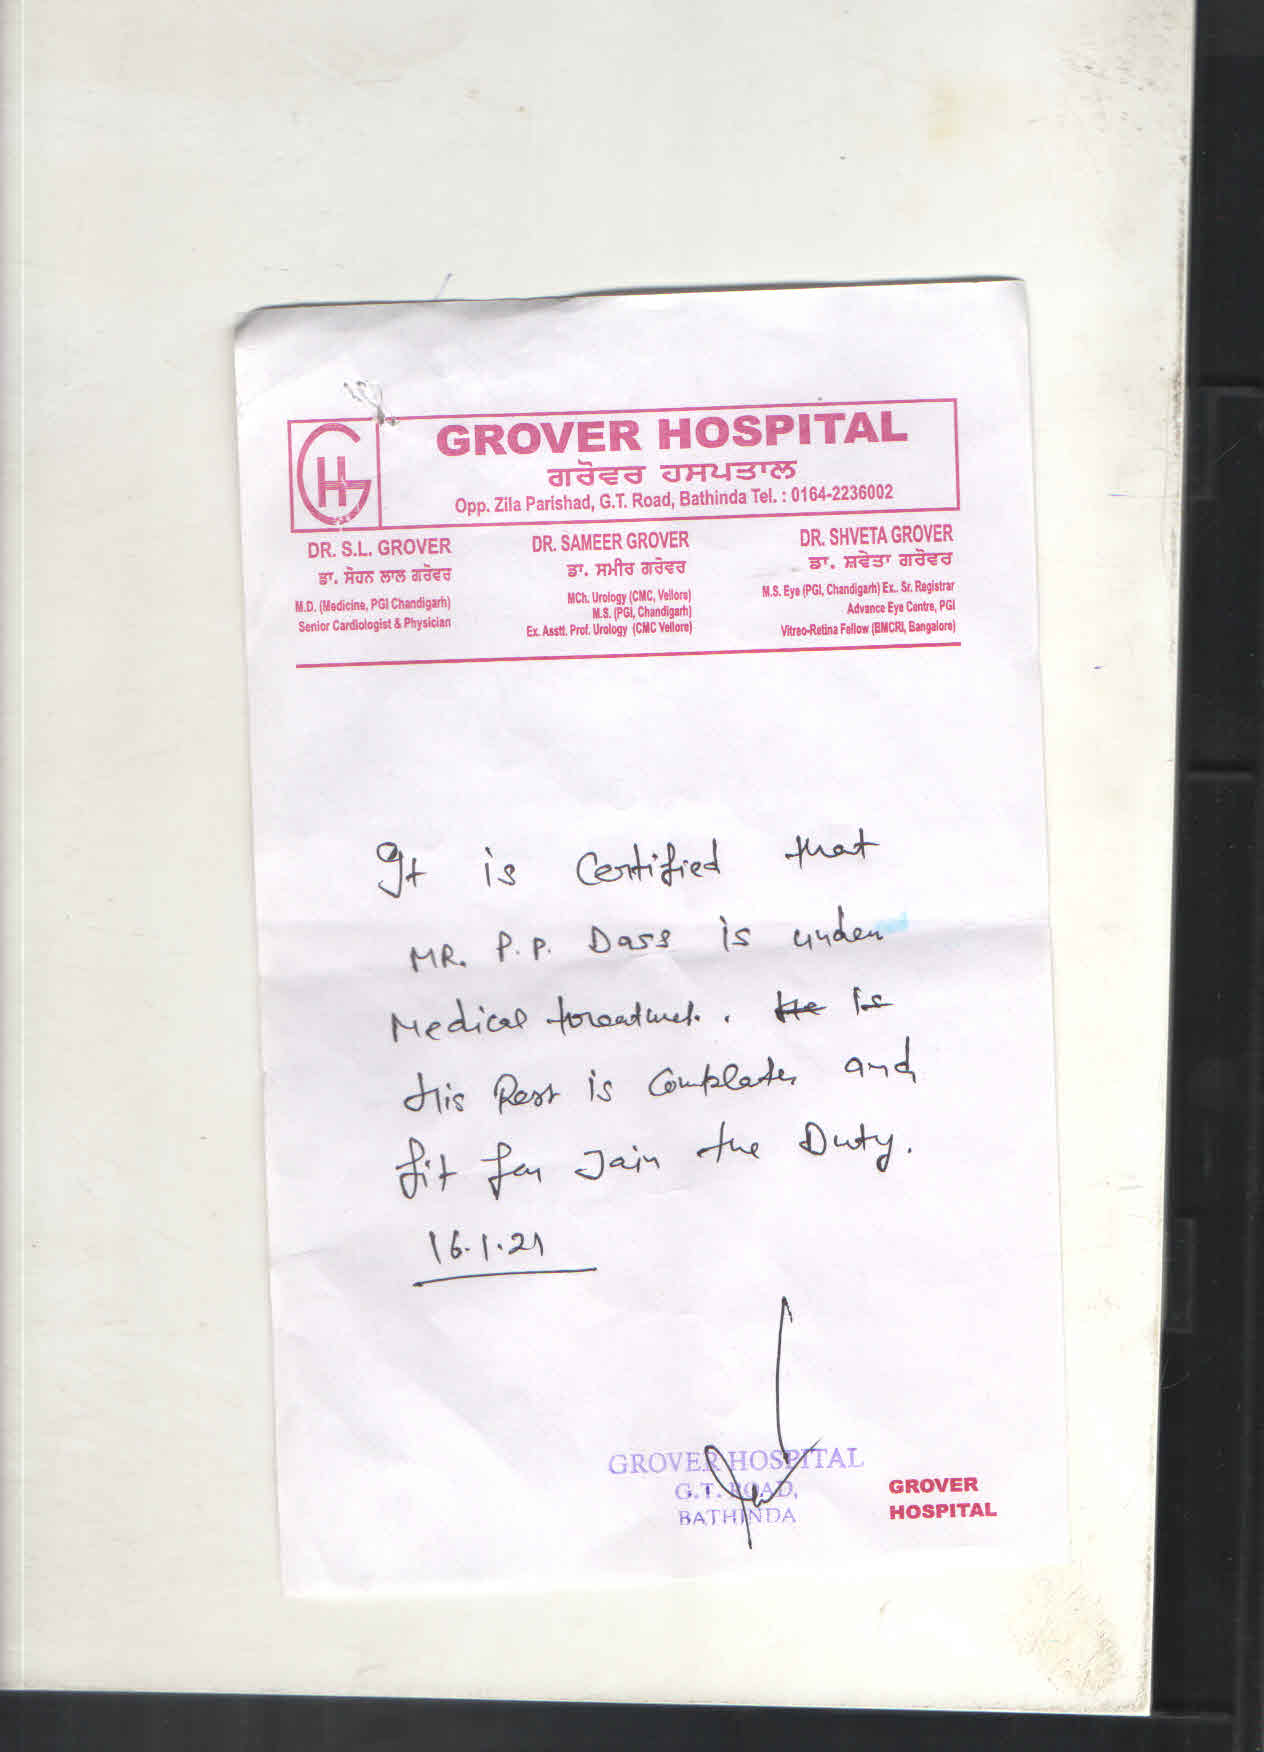 GH
GROVER HOSPITAL
ਗਰੋਵਰ ਹਸਪਤਾਲ
Opp. Zila Parishad, G.T. Road, Bathinda Tel. : 0164-2236002
DR. S.L. GROVER
ਡਾ. ਸੋਹਨ ਲਾਲ ਗਰੋਵਰ
M.D. (Medicine, PGI Chandigarh)
Senior Cardiologist & Physician
DR. SAMEER GROVER
ਡਾ. ਸਮੀਰ ਗਰੋਵਰ
MCh. Urology (CMC, Vellore)
M.S. (PGI, Chandigarh)
Ex. Asstt. Prof. Urology (CMC Vellore)
DR. SHVETA GROVER
ਡਾ. ਸ਼ਵੇਤਾ ਗਰੋਵਰ
M.S. Eye (PGI, Chandigarh) Ex.. Sr. Registrar
Advance Eye Centre, PGI
Vitreo-Retina Fellow (BMCRI, Bangalore)
It is Certified that
MR. P.P. Dass is under
Medical treatment. . He is
His Rest is Complete and
fit for Join the Duty.
16.1.21
GROVER HOSPITAL
G.T. ROAD,
BATHINDA
GROVER
HOSPITAL